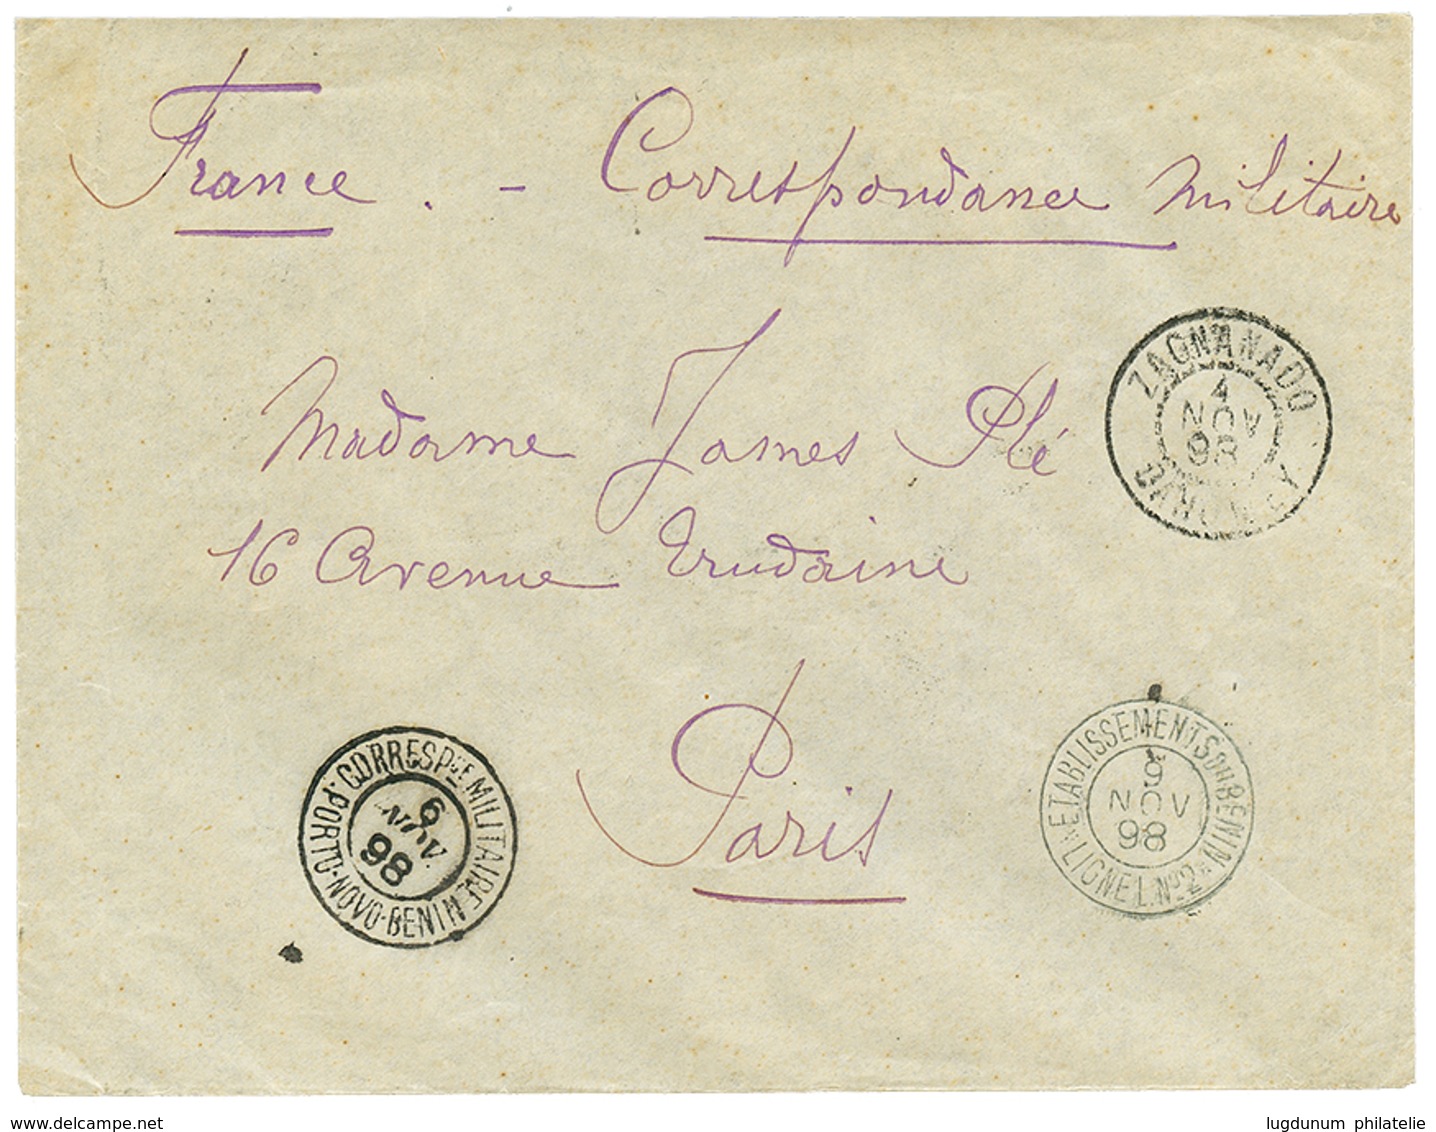 France. - Correspondance militaire
ZAGNANADO
4
NOV
98
Madame James Plé
16 Avenue Trudaine
Paris
CORRESPCE MILITAIRE
PORTO-NOVO-BENIN
6
NOV.
98
ETABLISSEMENTS DU BENIN
9
NOV
98
LIGNE L.No2
delcampe.net
lugdunum philatelie